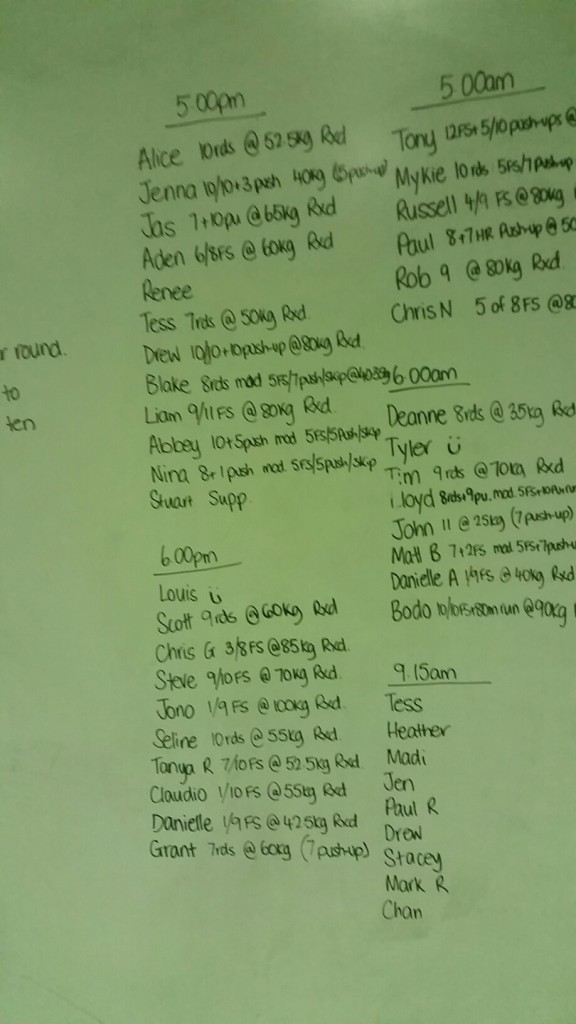 r round.
to
ten
5.00pm
Alice 10rds @ 52.5kg Rxd
Jenna 10/10+3push 40kg (5push-up)
Jas 7+10pu @ 65kg Rxd
Aden 6/8FS @ 60kg Rxd
Renee
Tess 7rds @ 50kg Rxd.
Drew 10/10+10push-up @80kg Rxd.
Blake 8rds mod 5FS/7push/skip@40
Liam 9/11FS @ 80kg Rxd.
Abbey 10+5push mod 5FS/5Push/skip
Nina 8+1push mod. 5FS/5push/skip
Stuart Supp.
6.00pm
Louis ü
Scott 9rds @ 60kg Rxd
Chris G 3/8FS @85kg Rxd.
Steve 9/10FS @ 70kg Rxd.
Jono 1/9FS @ 100kg Rxd.
Seline 10rds @ 55kg Rxd.
Tanya R 7/10FS @ 52.5kg Rxd
Claudio 1/10FS @ 55kg Rxd
Danielle 1/9FS @ 42.5kg Rxd
Grant 7rds @ 60kg (7pushup)
5.00am
Tony 12FS+5/10push-ups @
Mykie 10rds 5FS/7pushup
Russell 4/9 FS @ 80kg
Paul 8+7HR Push-up @ 50
Rob 9 @ 80kg Rxd.
Chris N 5 of 8FS @80
6.00am
Deanne 8rds @ 35kg Rxd
Tyler ü
Tim 9rds @ 70kg Rxd
Lloyd 8rds+9pu. mod. 5FS+10
John 11 @ 25kg (7push-up)
Matt B 7+2FS mod 5FS+7push-u
Danielle A 1/9FS @ 40kg Rxd
Bodo 10/10FS+80m run @90kg
9.15am
Tess
Heather
Madi
Jen
Paul R
Drew
Stacey
Mark R
Chan